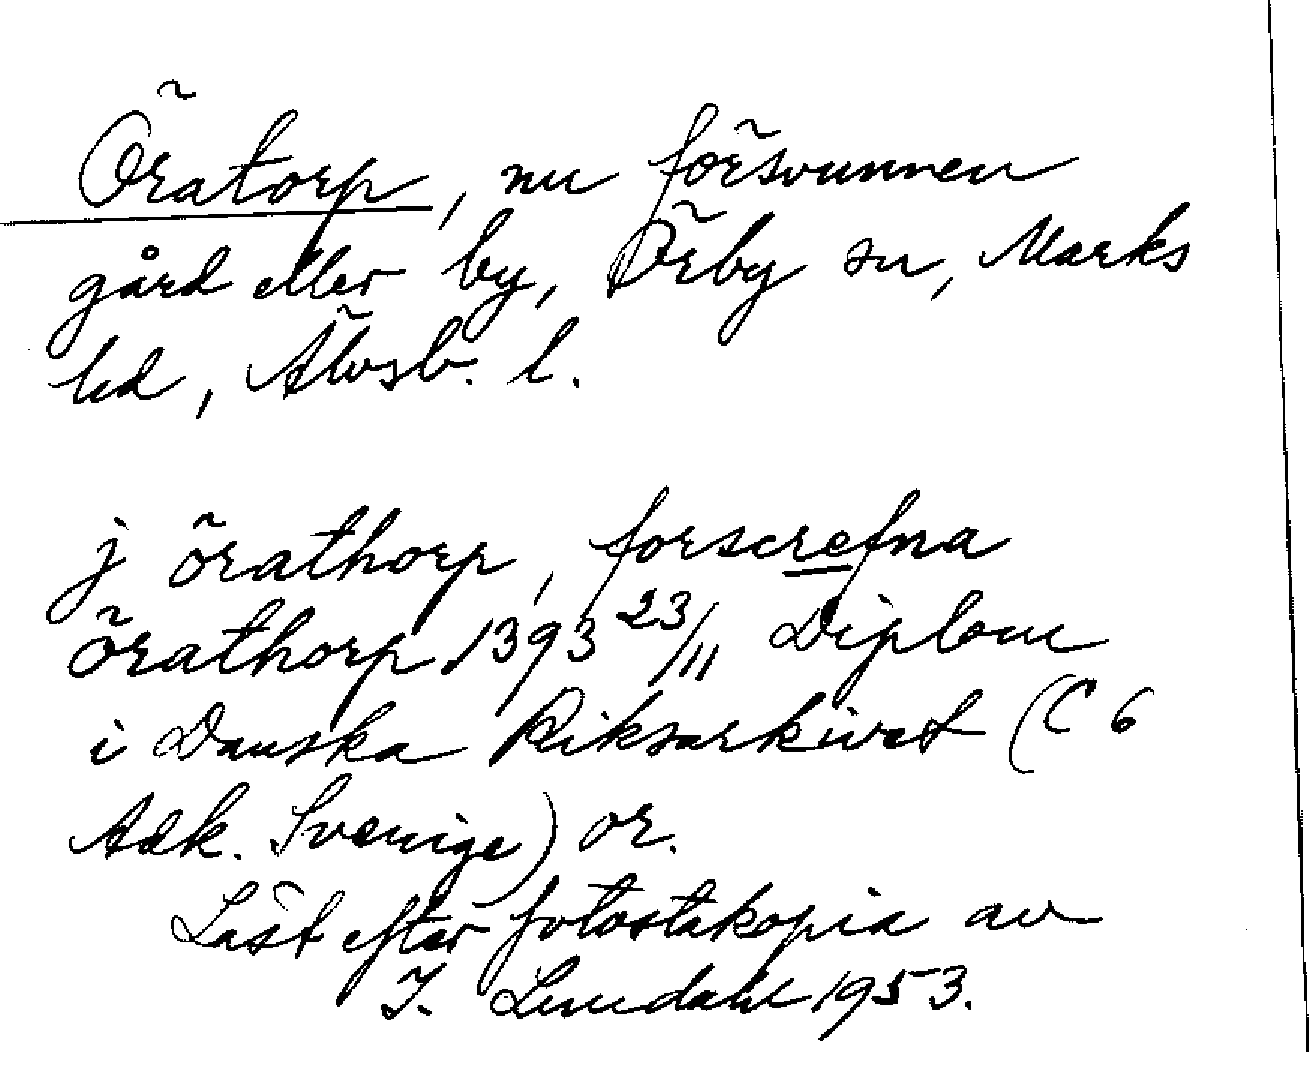 Öratorp, nu försvunnen
gård eller by, Örby sn, Marks
hd, Älvsb. l.
j örathorp, forscrefna
örathorp 1393 23/11 Diplom
i Danska Riksarkivet (C 6
Adk. Sverige) or.
Läst efter fotostatkopia av
I. Lundahl 1953.